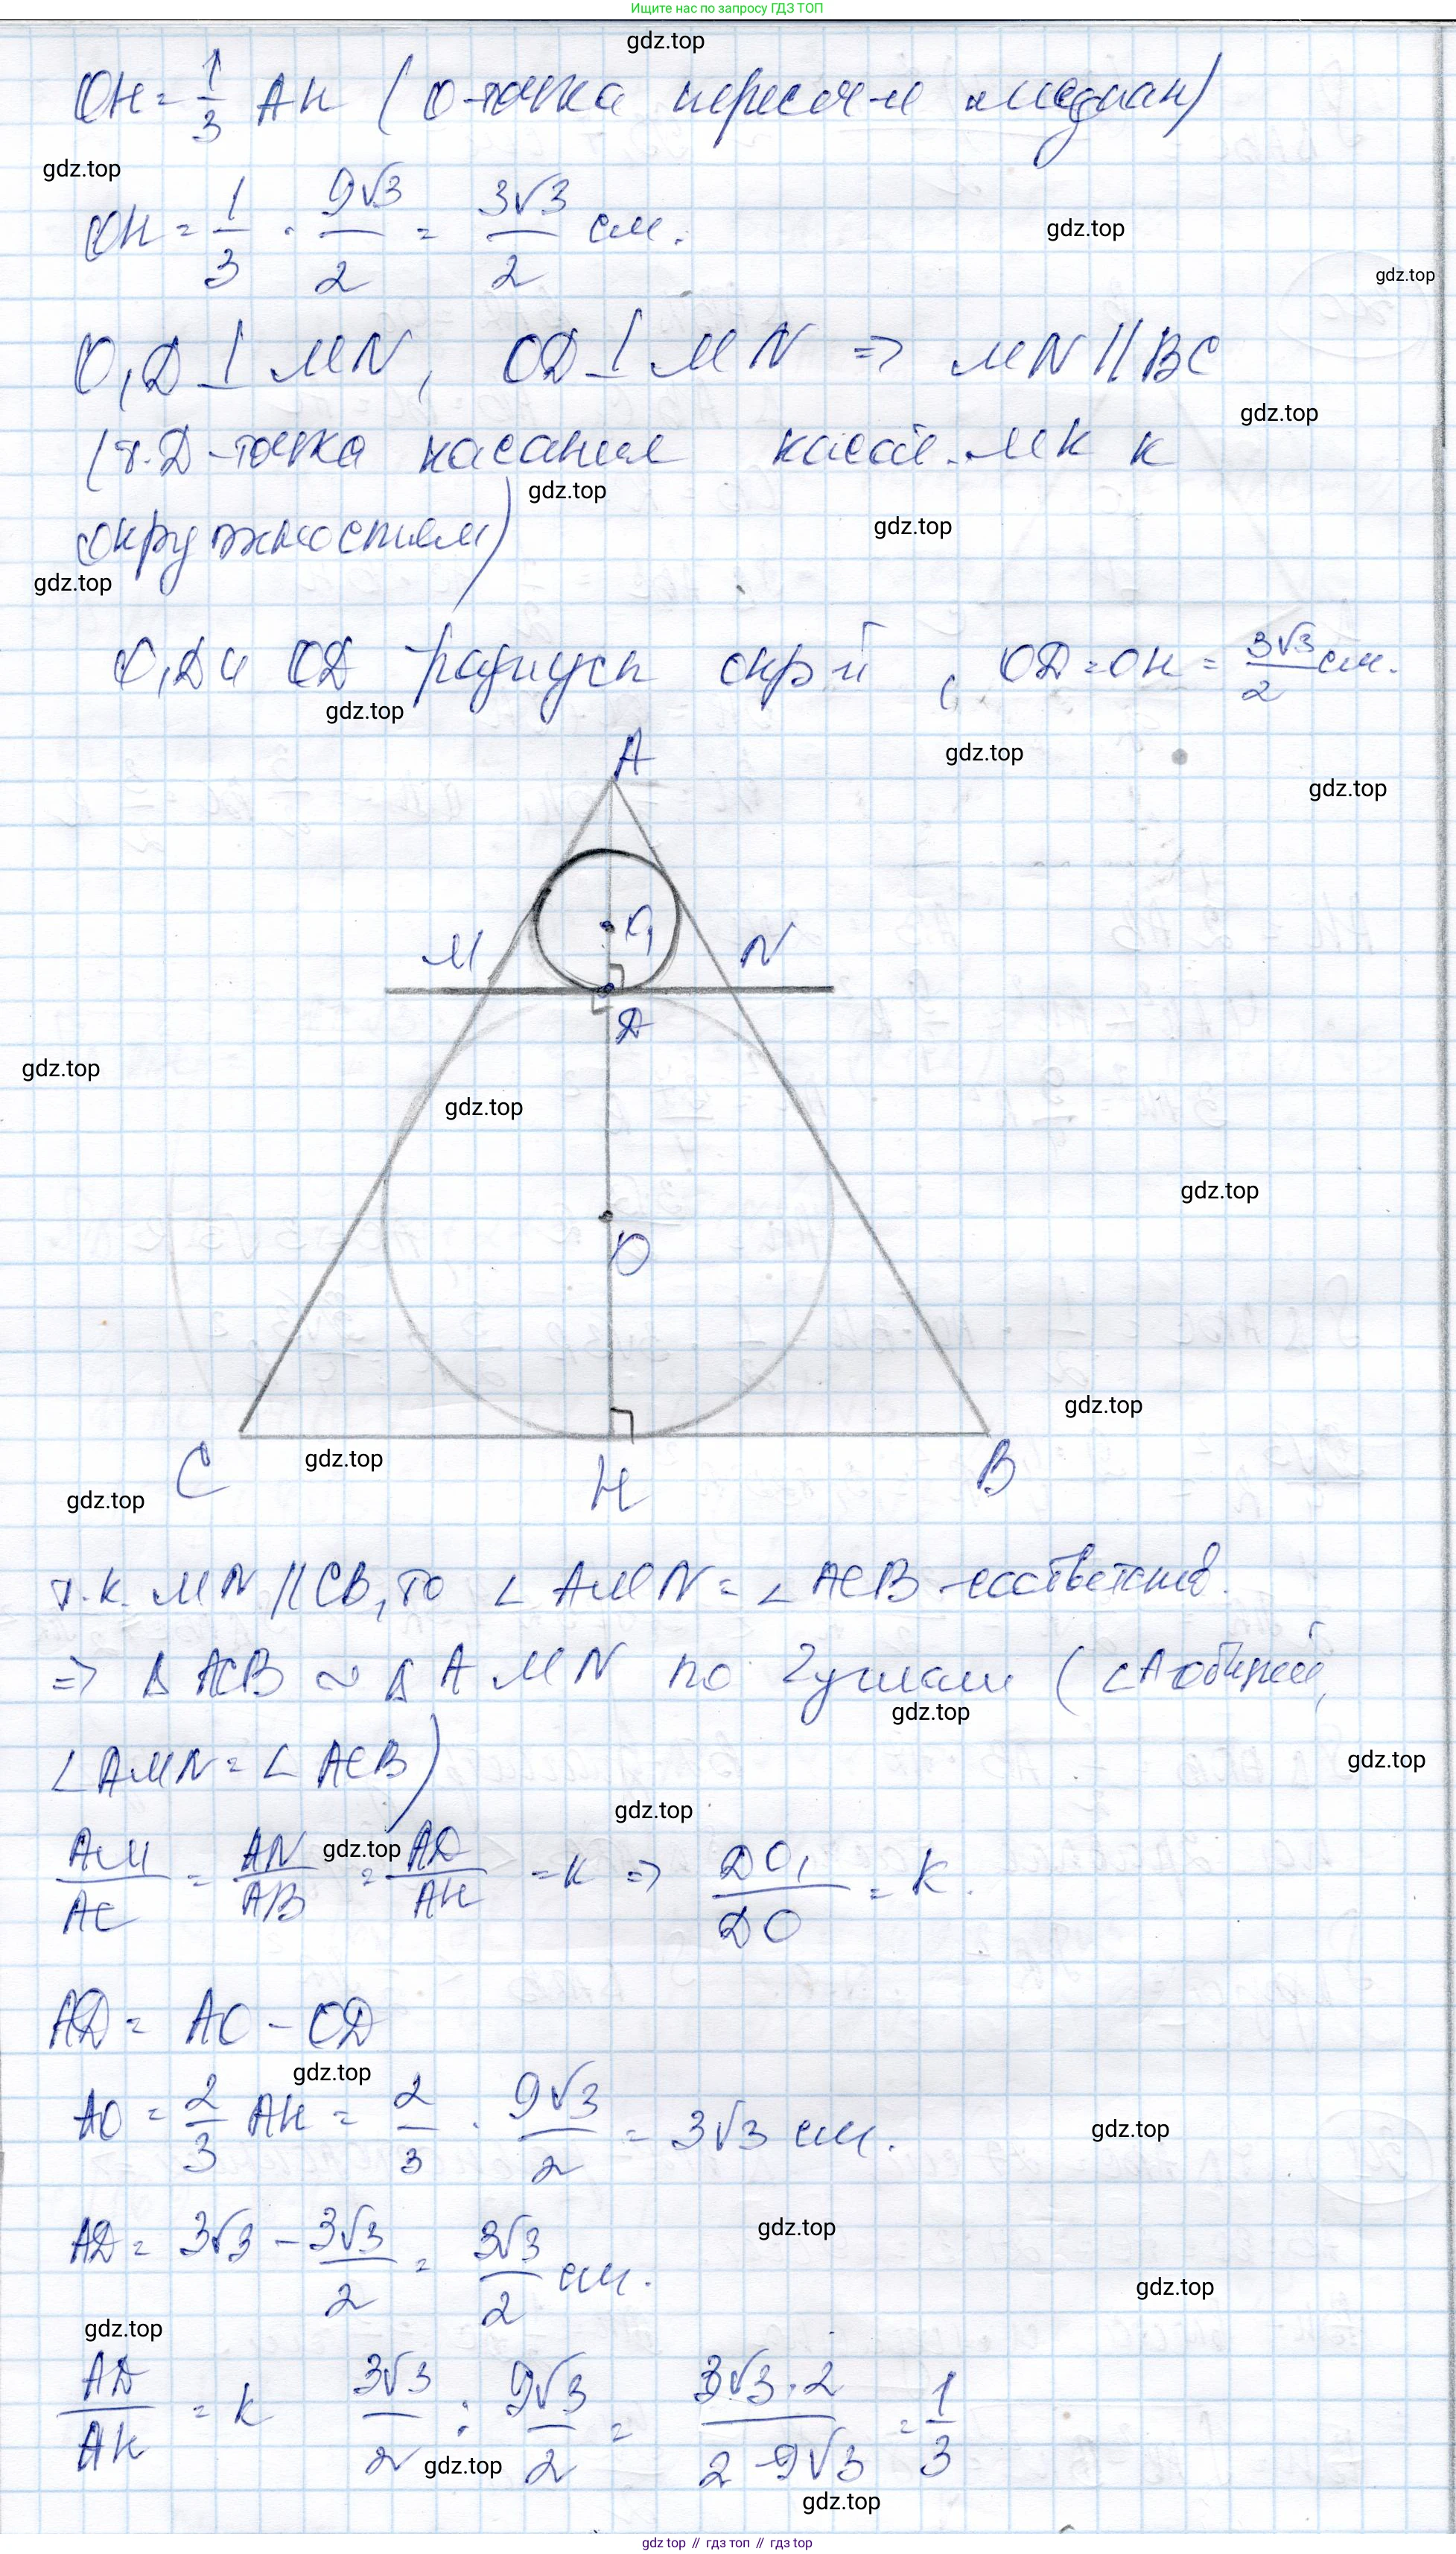 Ищите нас по запросу ГДЗ ТОП
gdz.top
OH = 1/3 AH (O-точка пересеч-я медиан)
gdz.top
OH = 1/3 · 9√3/2 = 3√3/2 см.
gdz.top
gdz.top
O₁D ⊥ MN, OD ⊥ MN => MN || BC
gdz.top
(т.D-точка касания касат. MK к
gdz.top
окружностям)
gdz.top
gdz.top
O₁D и OD радиусы окр-й, OD = OH = 3√3/2 см.
gdz.top
gdz.top
gdz.top
A
O₁
M
N
D
gdz.top
gdz.top
gdz.top
O
gdz.top
gdz.top
C
H
B
gdz.top
т.к. MN || CB, то ∠AMN = ∠ACB -соответств.
=> Δ ACB ~ Δ AMN по 2 углам (∠A общий,
gdz.top
∠AMN = ∠ACB)
gdz.top
gdz.top
gdz.top
AM/AC = AN/AB = AD/AH = k => DO₁/DO = k.
AD = AO - OD
gdz.top
AO = 2/3 AH = 2/3 · 9√3/2 = 3√3 см.
gdz.top
gdz.top
AD = 3√3 - 3√3/2 = 3√3/2 см.
gdz.top
gdz.top
AD/AH = k 3√3/2 : 9√3/2 = 3√3·2/2·9√3 = 1/3
gdz.top
gdz.top
gdz top // гдз топ // гдз top